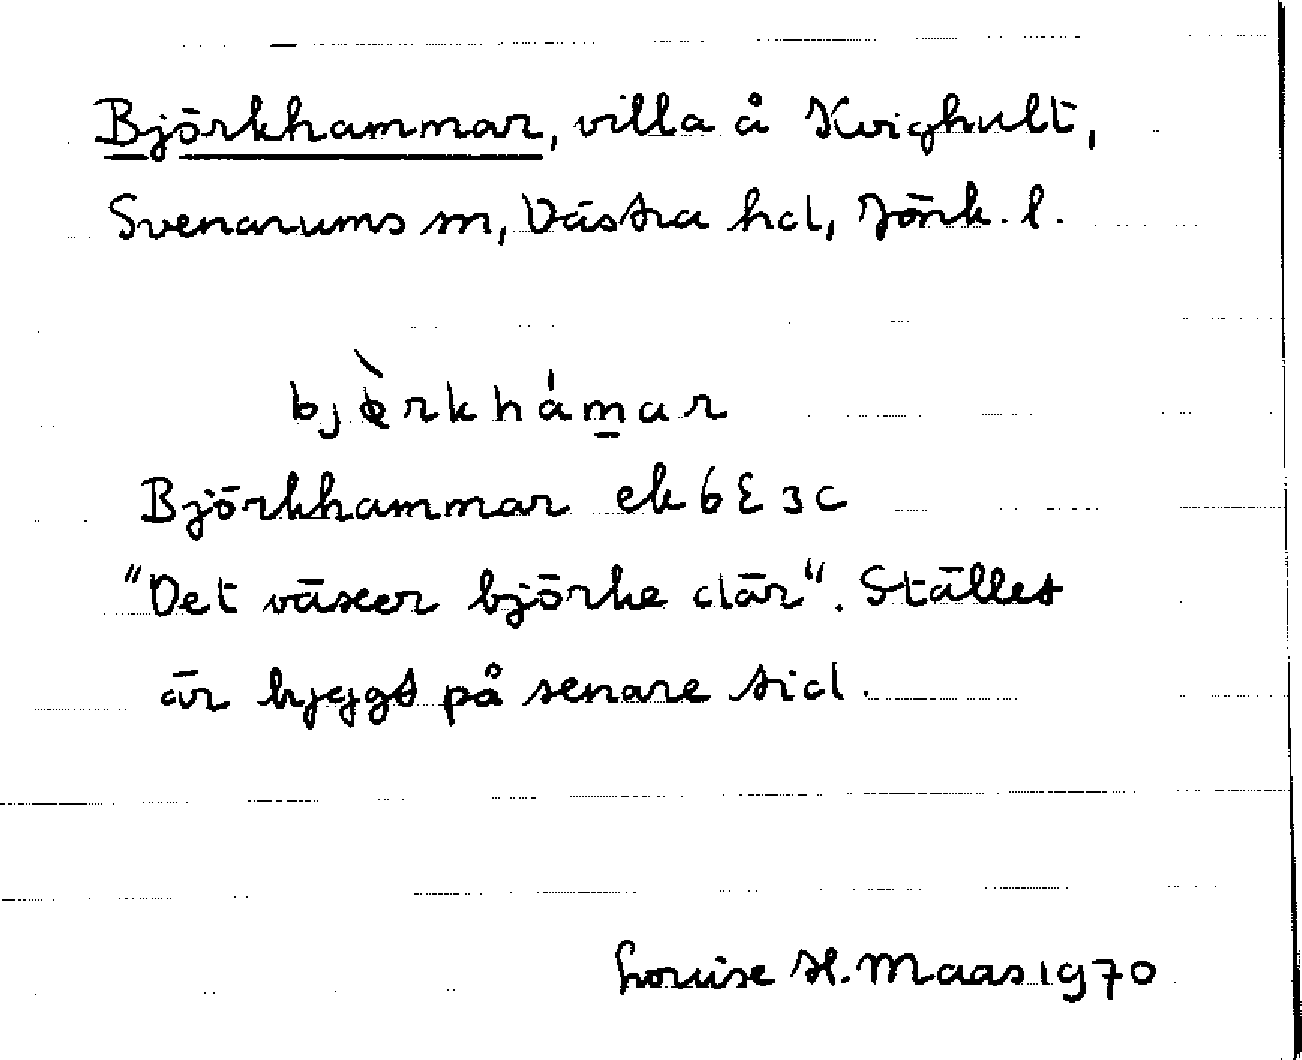 Björkhammar, villa å Kvighult,
Svenarums sn, Västra hd, Jönk. l.
bjèrkhámar
Björkhammar ek 6E 3c
"Det växer björke där". Stället
är byggt på senare tid.
Louise H. Maas 1970